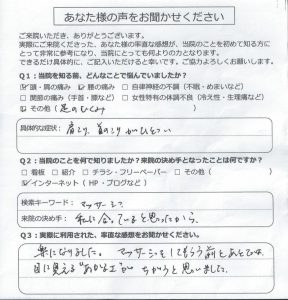 あなた様の声をお聞かせください
ご来院いただき、ありがとうございます。
実際にご来院くださった、あなた様の率直な感想が、当院のことを初めて知る方に
とって非常に参考になり、当院にとっても何よりの力となります。
できるだけ具体的に、ご記入いただけると幸いです。ご協力よろしくお願いします。
Q1：当院を知る前、どんなことで悩んでいましたか？
☑頭・肩の痛み ☑腰の痛み □自律神経の不調（不眠・めまいなど）
□関節の痛み（手首・膝など） □女性特有の体調不良（冷え性・生理痛など）
☑その他（足のむくみ）
具体的な症状： 肩こり、首のこりがひどい
Q2：当院のことを何で知りましたか？来院の決め手となったことは何ですか？
□看板 □紹介 □チラシ・フリーペーパー □その他（ ）
☑インターネット（HP・ブログなど）
検索キーワード： マッサージ
来院の決め手： 私に合っていると思ったから。
Q3：実際に利用された、率直な感想をお聞かせください。
楽になりました。マッサージをしてもらう前とあとでは、
目に見える"あかるさ"がちがうと思いました。